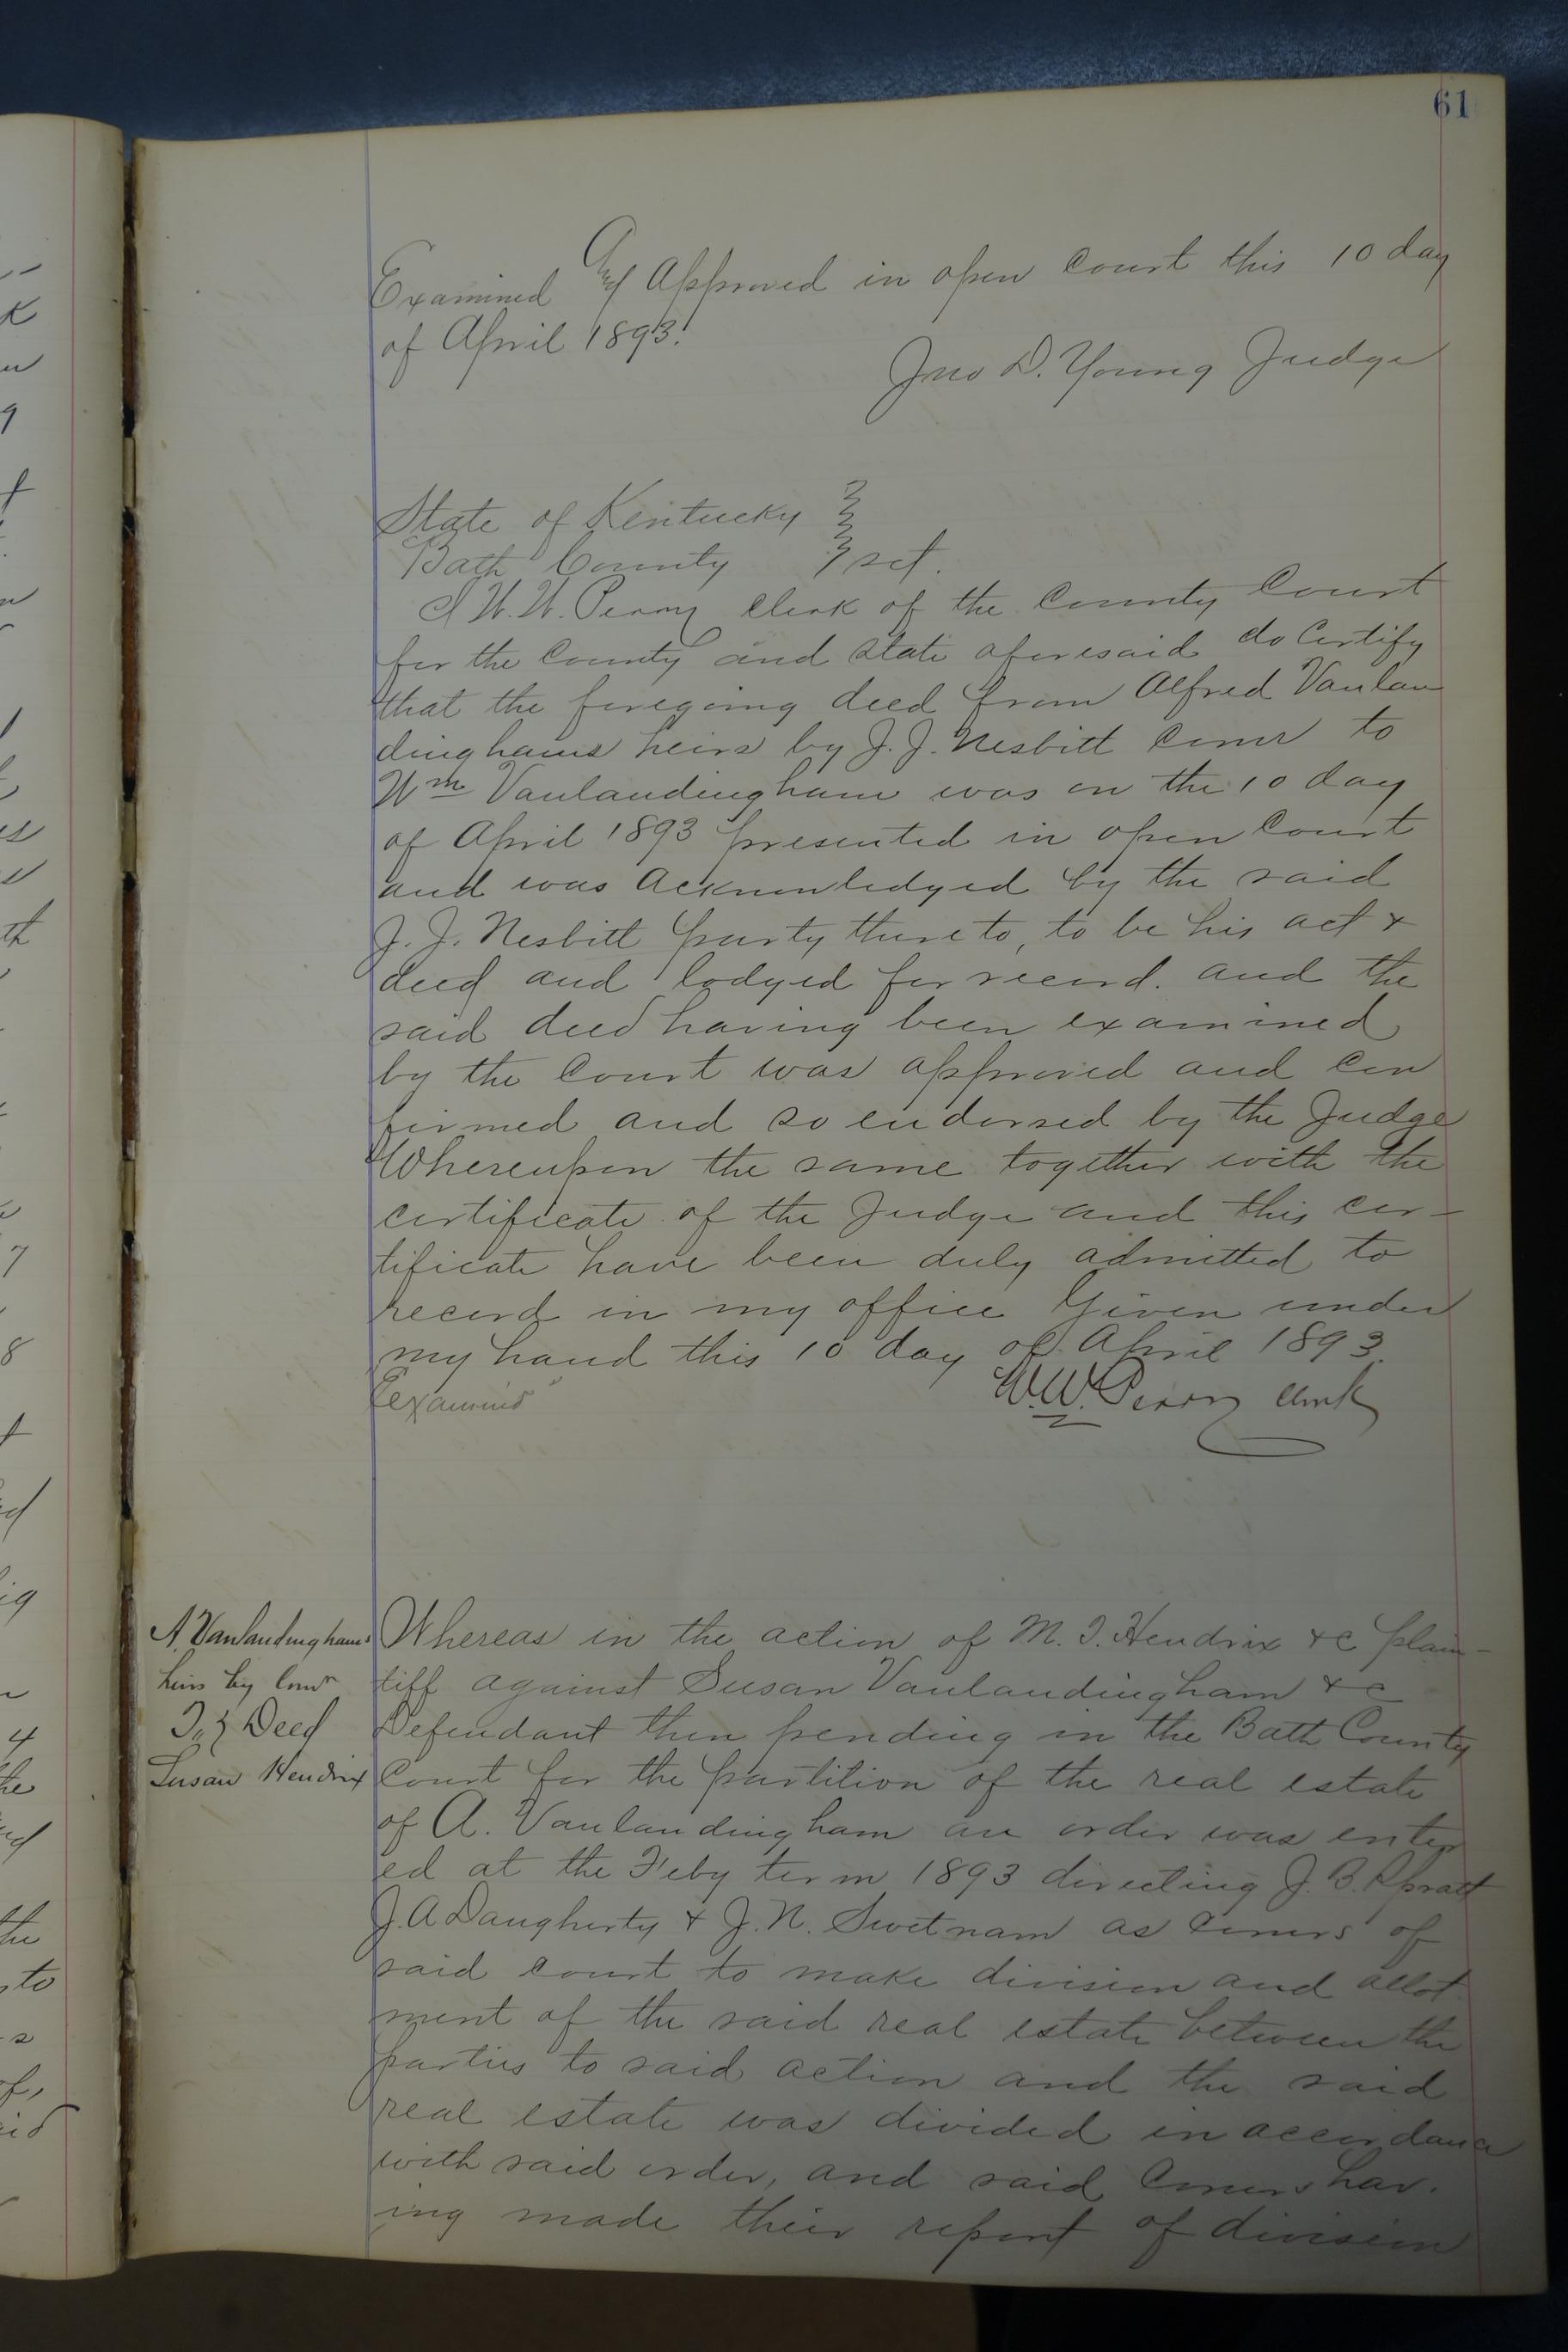 61
Examined And Approved in open Court this 10 day
of April 1893.
Jno D. Young Judge
State of Kentucky
Bath County } sct.
I W. W. Perry Clerk of the County Court
for the County and State aforesaid do Certify
that the foregoing deed from Alfred Vanlan
dinghams heirs by J. J. Nesbitt Comr to
Wm Vanlandingham was on the 10 day
of April 1893 presented in open Court
and was acknowledged by the said
J. J. Nesbitt party thereto, to be his act &
deed and lodged for record. and the
said deed having been examined
by the Court was approved and con
firmed and so endorsed by the Judge
Whereupon the same together with the
certificate of the Judge and this cer-
tificate have been duly admitted to
record in my office Given under
my hand this 10 day of April 1893.
Examined
W. W. Perry Clerk
A. Vanlandinghams
heirs by Comr
To } Deed
Susan Hendrix
Whereas in the action of M. T. Hendrix &c plain-
tiff against Susan Vanlandingham &c
Defendant then pending in the Bath County
Court for the partition of the real estate
of A. Vanlandingham an order was enter
ed at the Feby term 1893 directing J. B. Spratt
J. A Daugherty & J. N. Swetnam as Comrs of
said court to make division and allot
ment of the said real estate between the
parties to said action and the said
real estate was divided in accordance
with said order, and said Comrs hav-
ing made their report of division